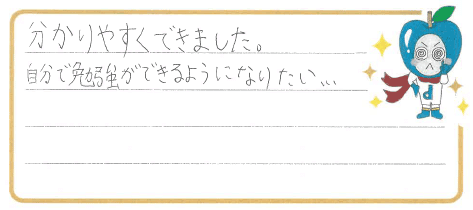 分かりやすくできました。
自分で勉強ができるようになりたい...
d